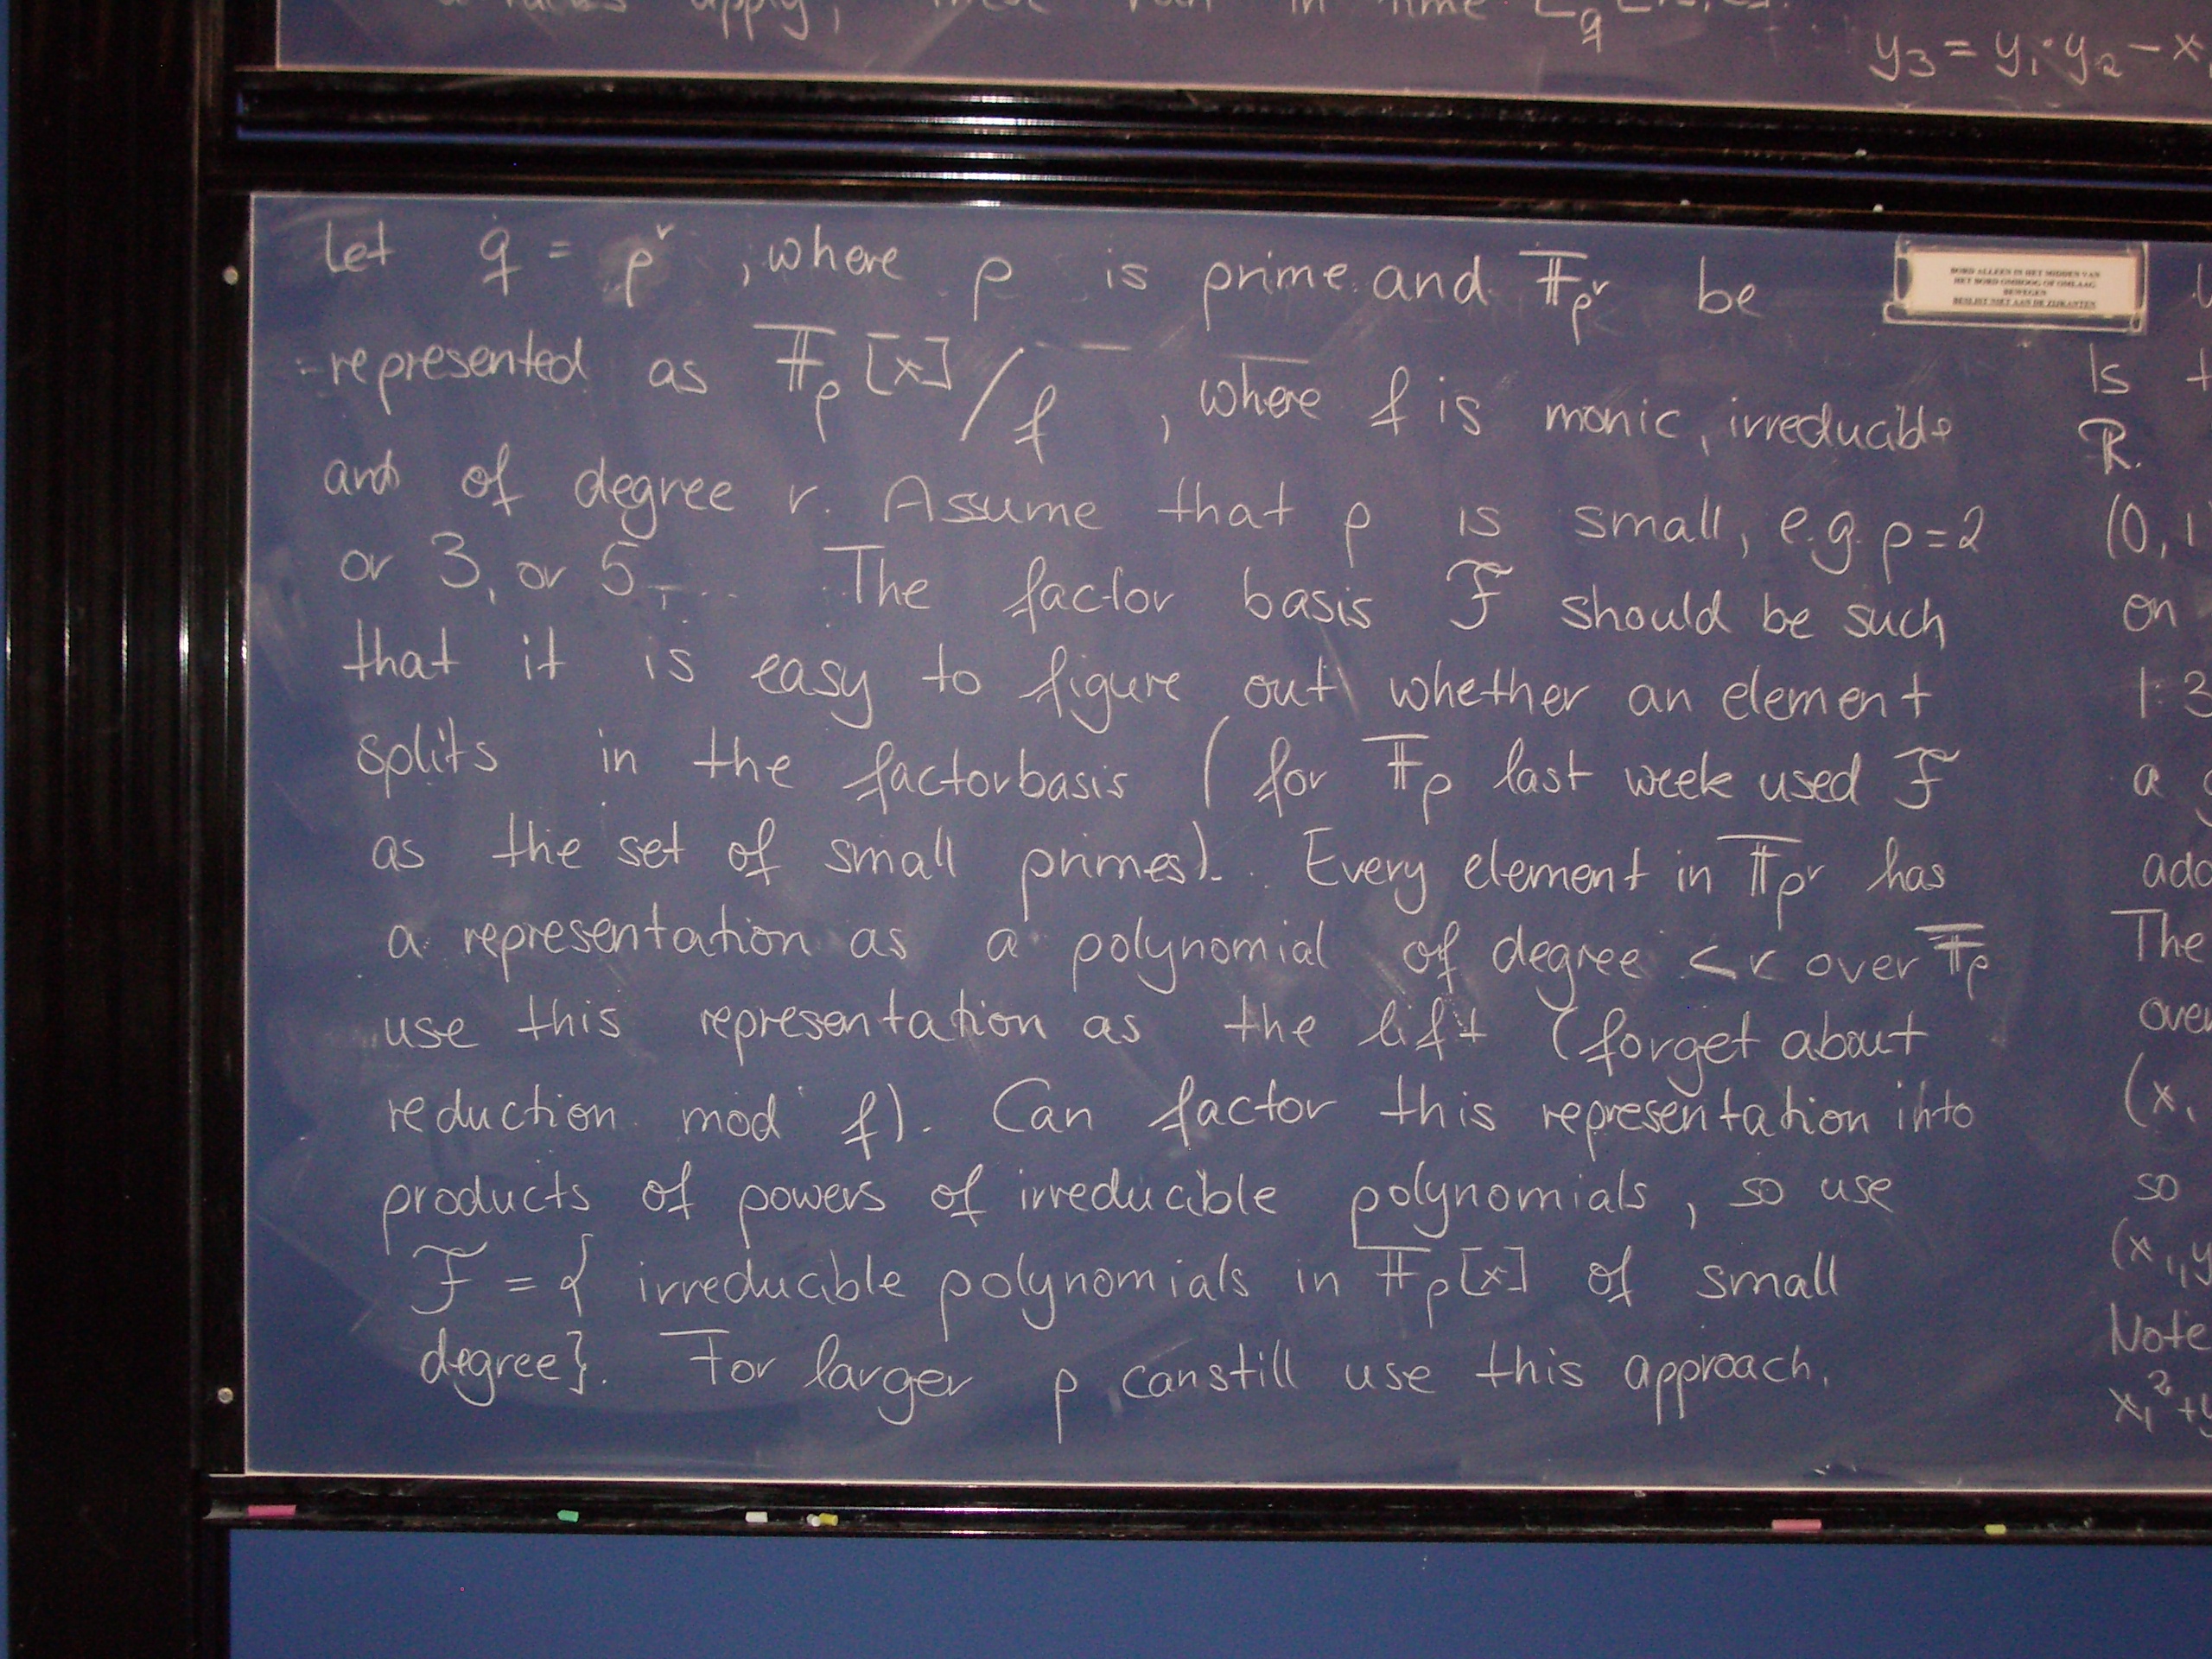 apply, in time L_q
y₃ = y₁·y₂ − x₁
Let q = p^r, where p is prime and 𝔽_{p^r} be
BORD ALLEEN IN HET MIDDEN VAN
HET BORD OMHOOG OF OMLAAG
BEWEGEN
BESLIST NIET AAN DE ZIJKANTEN
represented as 𝔽_p[x]/f, where f is monic, irreducible
and of degree r. Assume that p is small, e.g. p=2
or 3, or 5, ... The factor basis ℱ should be such
that it is easy to figure out whether an element
splits in the factorbasis (for 𝔽_p last week used ℱ
as the set of small primes). Every element in 𝔽_{p^r} has
a representation as a polynomial of degree <r over 𝔽_p
use this representation as the lift (forget about
reduction mod f). Can factor this representation into
products of powers of irreducible polynomials, so use
ℱ = { irreducible polynomials in 𝔽_p[x] of small
degree}. For larger p can still use this approach.
Is
R.
(0,1
on
1 3
a
add
The
over
(x,
so
(x₁,y
Note
x₁²+y